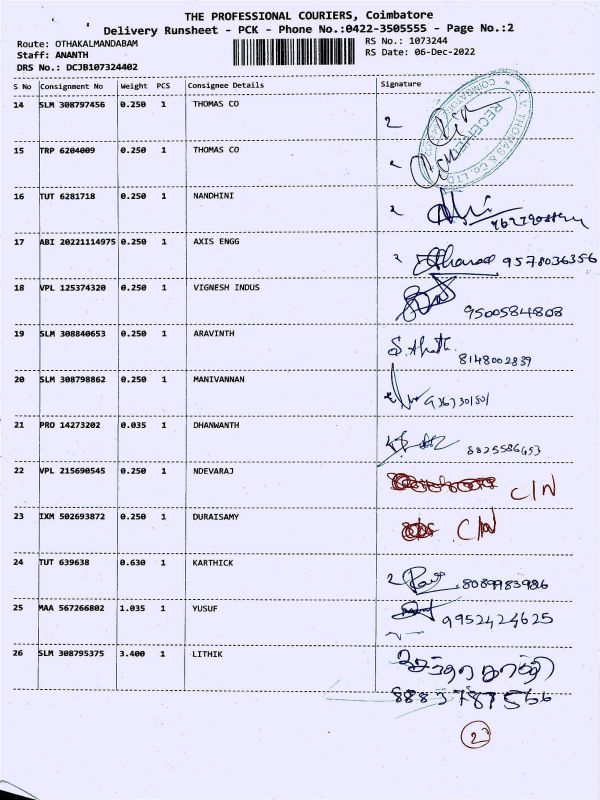 THE PROFESSIONAL COURIERS, Coimbatore
Delivery Runsheet - PCK - Phone No.:0422-3505555 - Page No.:2
Route: OTHAKALMANDABAM RS No.: 1073244
Staff: ANANTH RS Date: 06-Dec-2022
DRS No.: DCJB107324402
S No Consignment No Weight PCS Consignee Details Signature
14 SLM 308797456 0.250 1 THOMAS CO
15 TRP 6204009 0.250 1 THOMAS CO
16 TUT 6281718 0.250 1 NANDHINI
17 ABI 20221114975 0.250 1 AXIS ENGG 9578036356
18 VPL 125374320 0.250 1 VIGNESH INDUS 9500584808
19 SLM 308840653 0.250 1 ARAVINTH 8148002839
20 SLM 308798862 0.250 1 MANIVANNAN
21 PRO 14273202 0.035 1 DHANWANTH 8825586653
22 VPL 215690545 0.250 1 NDEVARAJ C/N
23 IXM 502693872 0.250 1 DURAISAMY C/N
24 TUT 639638 0.630 1 KARTHICK 8089983986
25 MAA 567266802 1.035 1 YUSUF 9952424625
26 SLM 308795375 3.400 1 LITHIK
RECEIVED